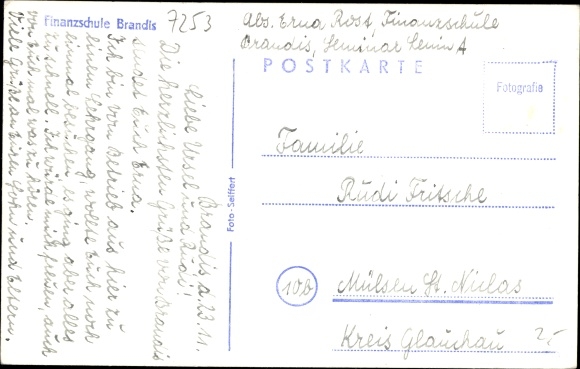 Finanzschule Brandis
7253
Abs. Erna Rost, Finanzschule
Brandis, Seminar Lenin A
POSTKARTE
Fotografie
Foto-Seiffert
Brandis, d. 23.11.
Liebe Ursel und Rudi!
Die herzlichsten Grüße von Brandis
sendet Euch Erna.
Ich bin vom Betrieb aus hier zu
einem Lehrgang, wollte Euch noch
einmal besuchen, es ging aber alles
zu schnell. Ich würde mich freuen, auch
von Euch mal was zu hören.
Viele Grüße an Euren Sohn und Eltern.
Familie
Rudi Fritsche
10b
Mülsen St. Niclas
Kreis Glauchau
2,-